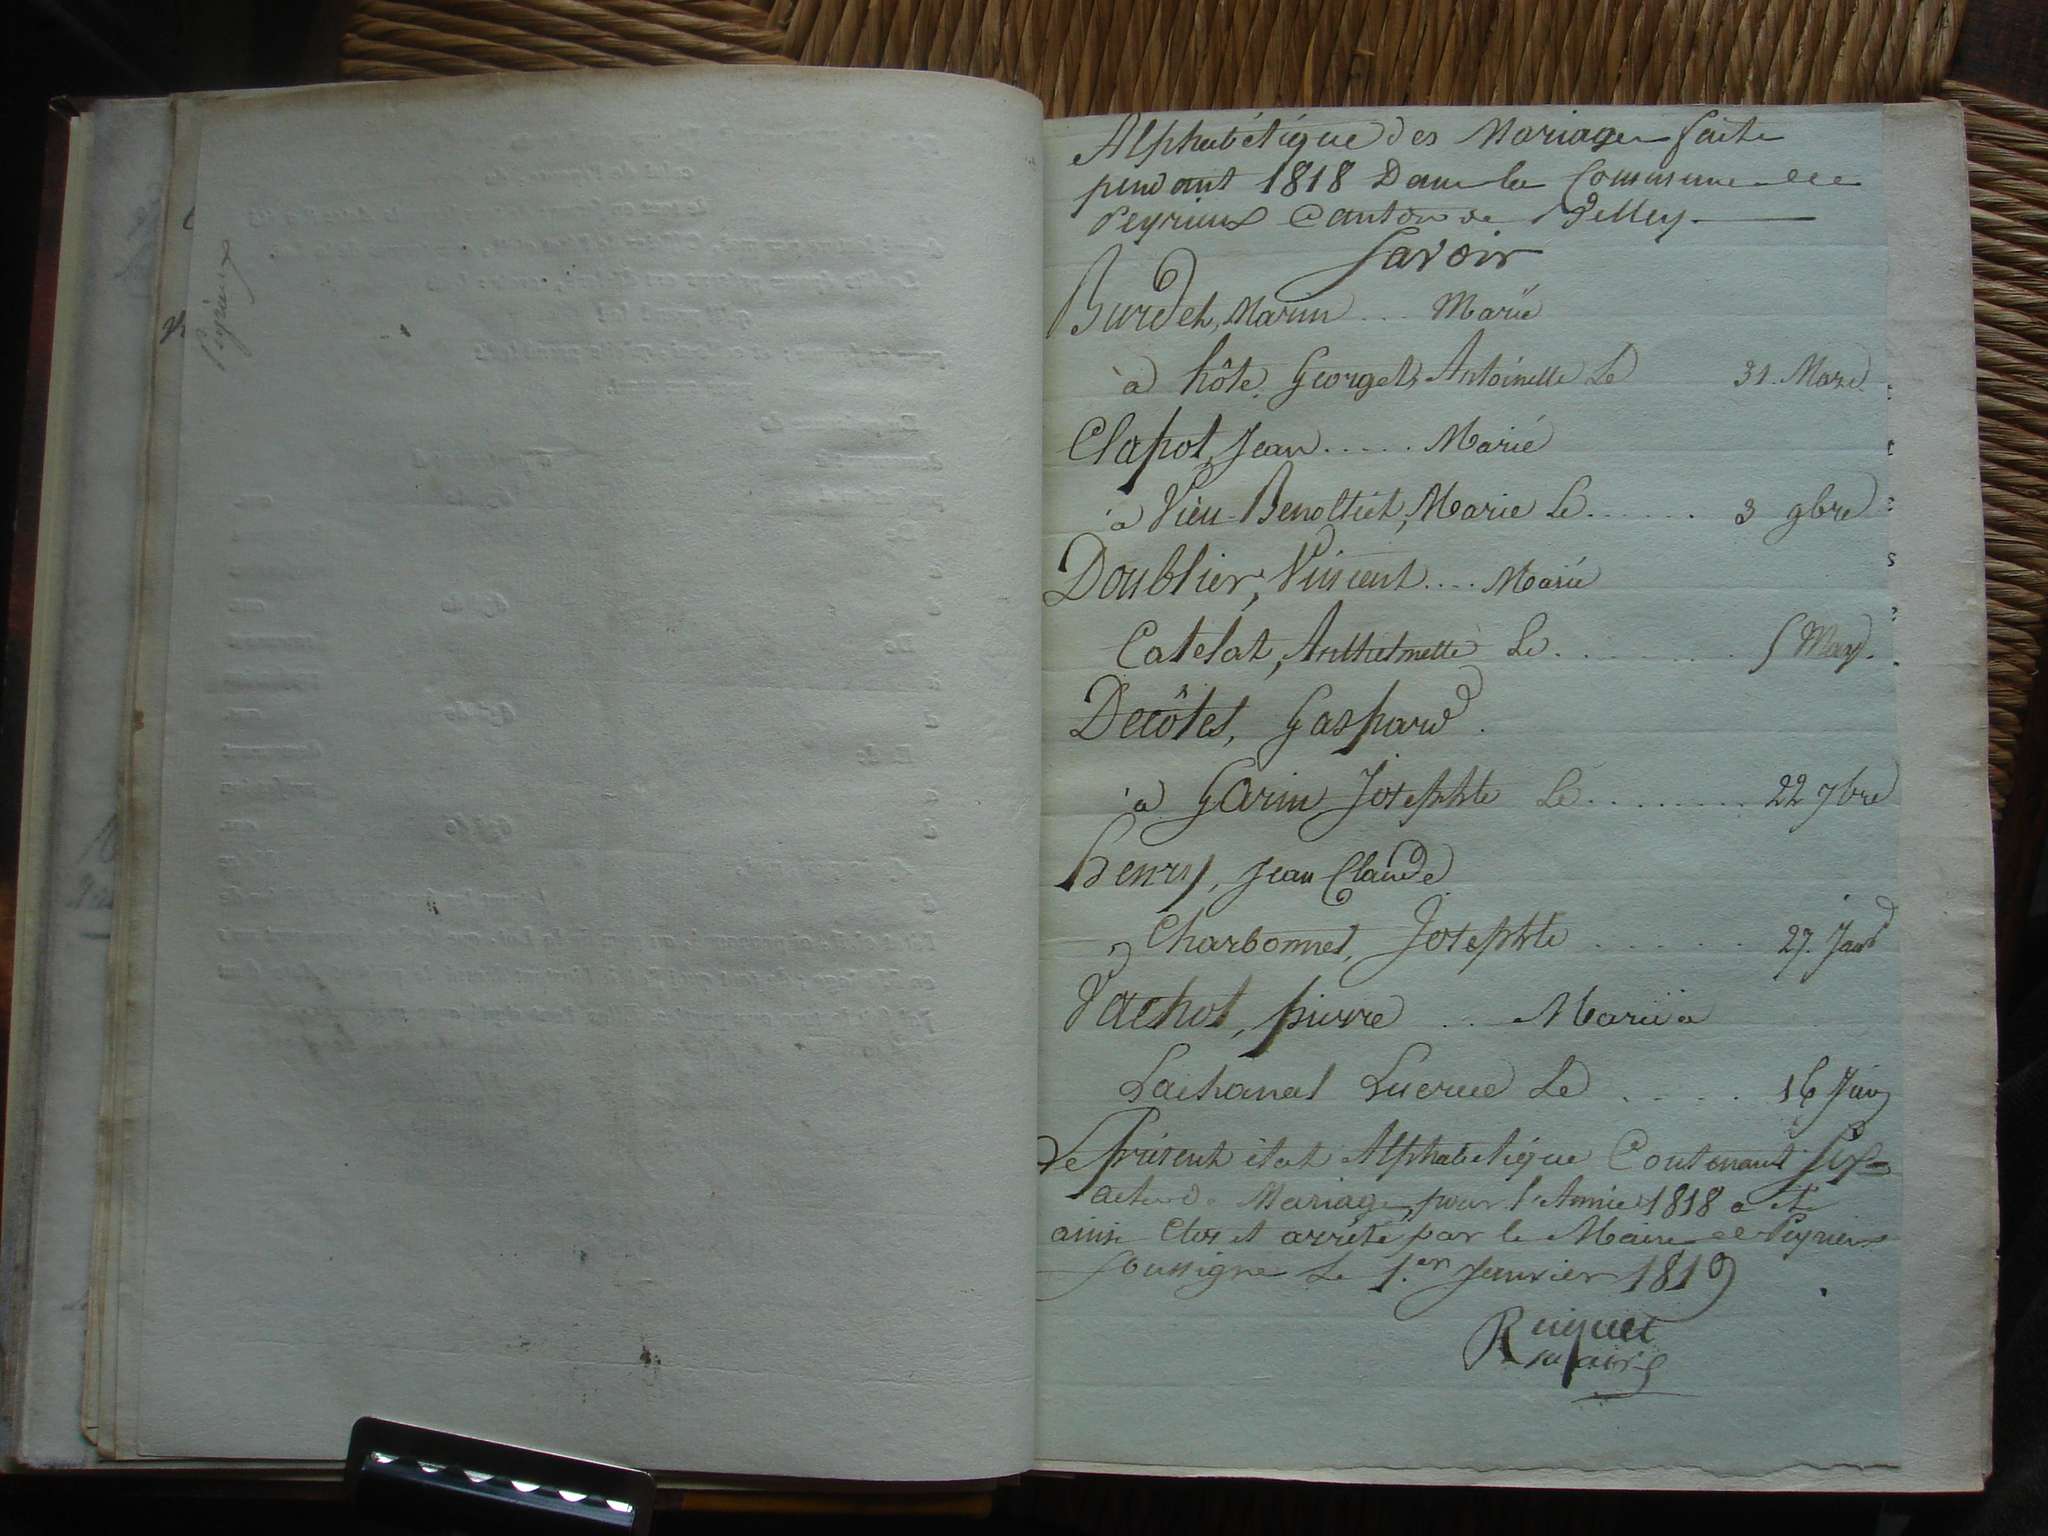 Peyrieux
Alphabétique des Mariages faits
pendant 1818 Dans la Commune de
Peyrieux Canton de Belley
Savoir
Burdet, Marin ... Marié
à hôte Georgette Antoinette Le 31 Mars
Clapot, Jean ..... Marié
à Vieu-Benoltiet, Marie Le ...... 3 9bre
Doublier, Vincent .... Marié
Catelat, Anthelmette Le ........ 5 May.
Decôtes, Gaspard.
à Garin Josephte Le ........ 22 7bre
henry, Jean Claude
à Charbonnet, Josephte ...... 27. Janv
Vachot, pierre ... Marié a
Lachanal Lucrece Le ..... 16 Juin
Le présent état Alphabétique Contenant Six
actes de Mariage pour l'Année 1818 a été
ainsi Clos et arrêté par le Maire de Peyrieux
Soussigné Le 1.er Janvier 1819
maire